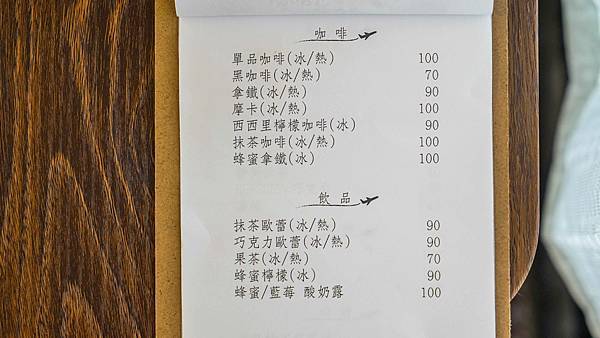 咖啡
單品咖啡(冰/熱) 100
黑咖啡(冰/熱) 70
拿鐵(冰/熱) 90
摩卡(冰/熱) 100
西西里檸檬咖啡(冰) 90
抹茶咖啡(冰/熱) 100
蜂蜜拿鐵(冰) 100
飲品
抹茶歐蕾(冰/熱) 90
巧克力歐蕾(冰/熱) 90
果茶(冰/熱) 70
蜂蜜檸檬(冰) 90
蜂蜜/藍莓 酸奶露 100